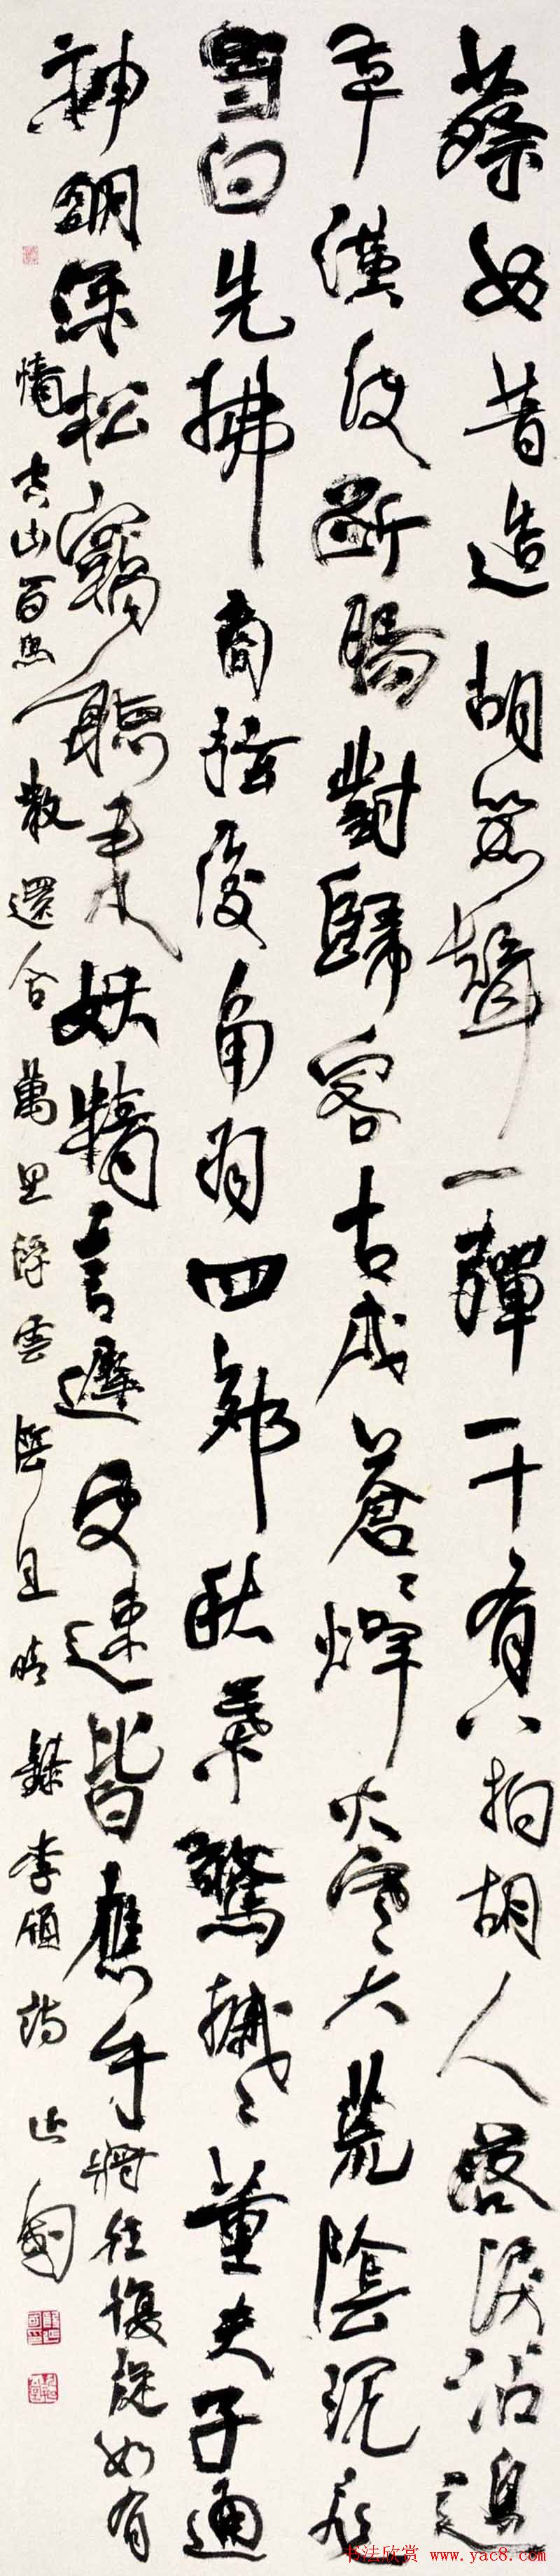 蔡女昔造胡笳聲一彈一十有八拍胡人落淚沾邊
草漢使斷腸對歸客古戍蒼〻烽火寒大荒陰沉飛
雪白先拂商弦後角羽四郊秋葉驚摵〻董夫子通
神明深松竊聽來妖精言遲更速皆應手將往復旋如有
情空山百鳥散還合萬里浮雲陰且晴錄李頎詩
书法欣赏 www.yac8.com